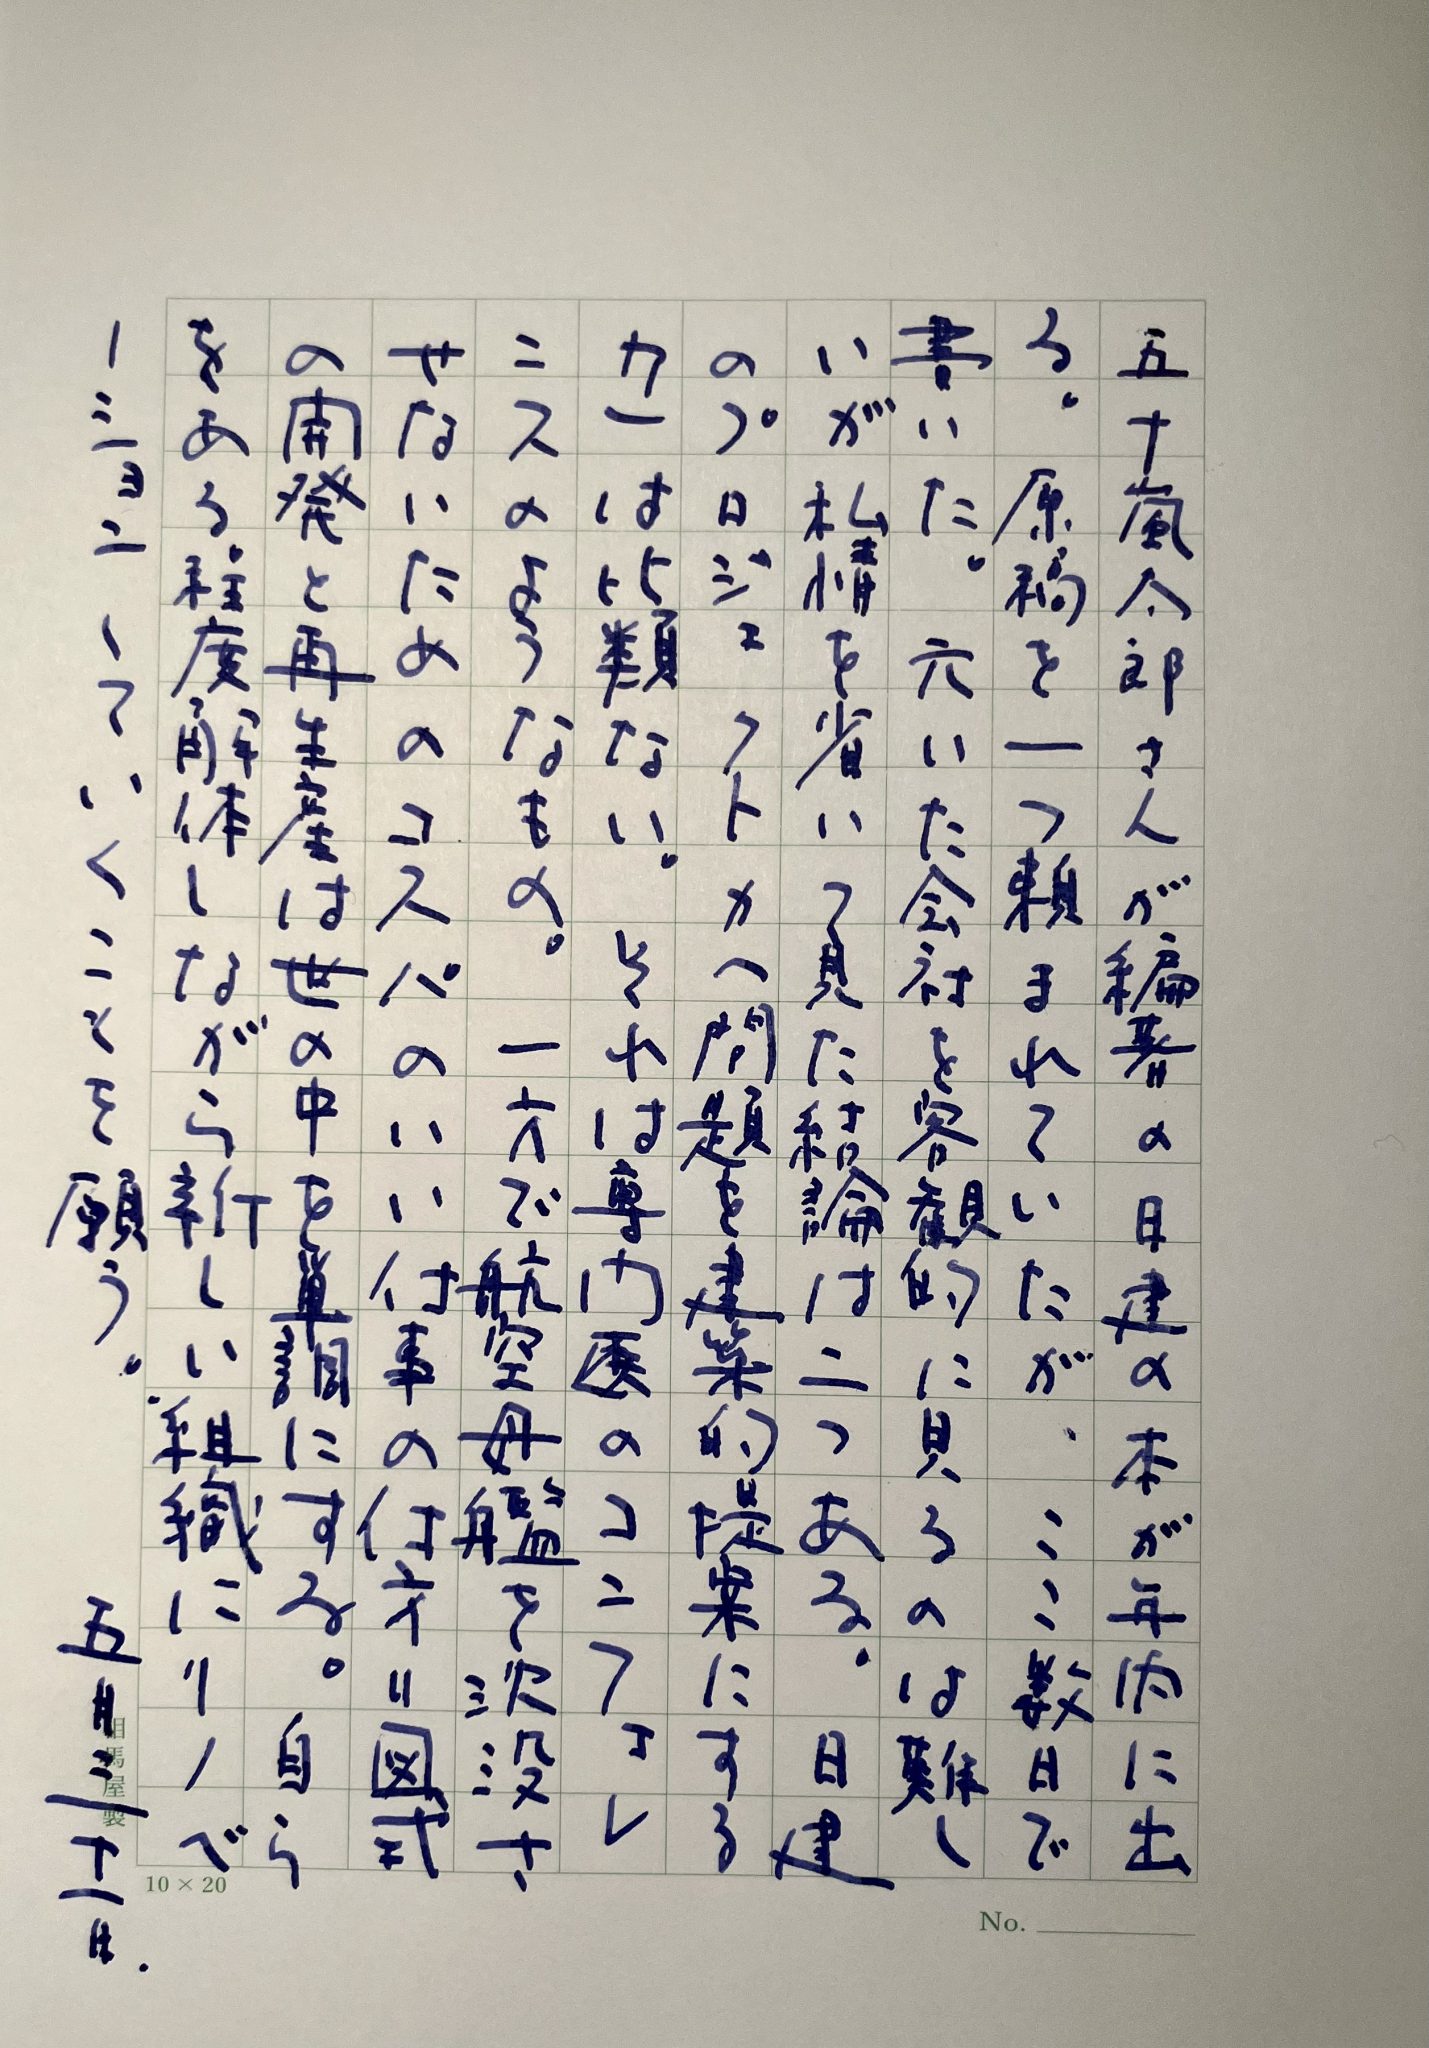 五十嵐太郎さんが編著の日建の本が年内に出
る。原稿を一つ頼まれていたが、ここ数日で
書いた。元いた会社を客観的に見るのは難し
いが私情を省いて見た結論は二つある。日建
のプロジェクトかへ問題を建築的提案にする
力一は比類ない。それは専門医のコンフさレ
ニスのようなもの。一方で航空母艦を沈没さ
せないためのコスパのいい仕事の仕方=図式
の開発と再生産は世の中を単調にする。自ら
をある程度解体しながら新しい組織にリノベ
ーションしていくことを願う。
五月三十一日.
相馬屋製
10×20
No.